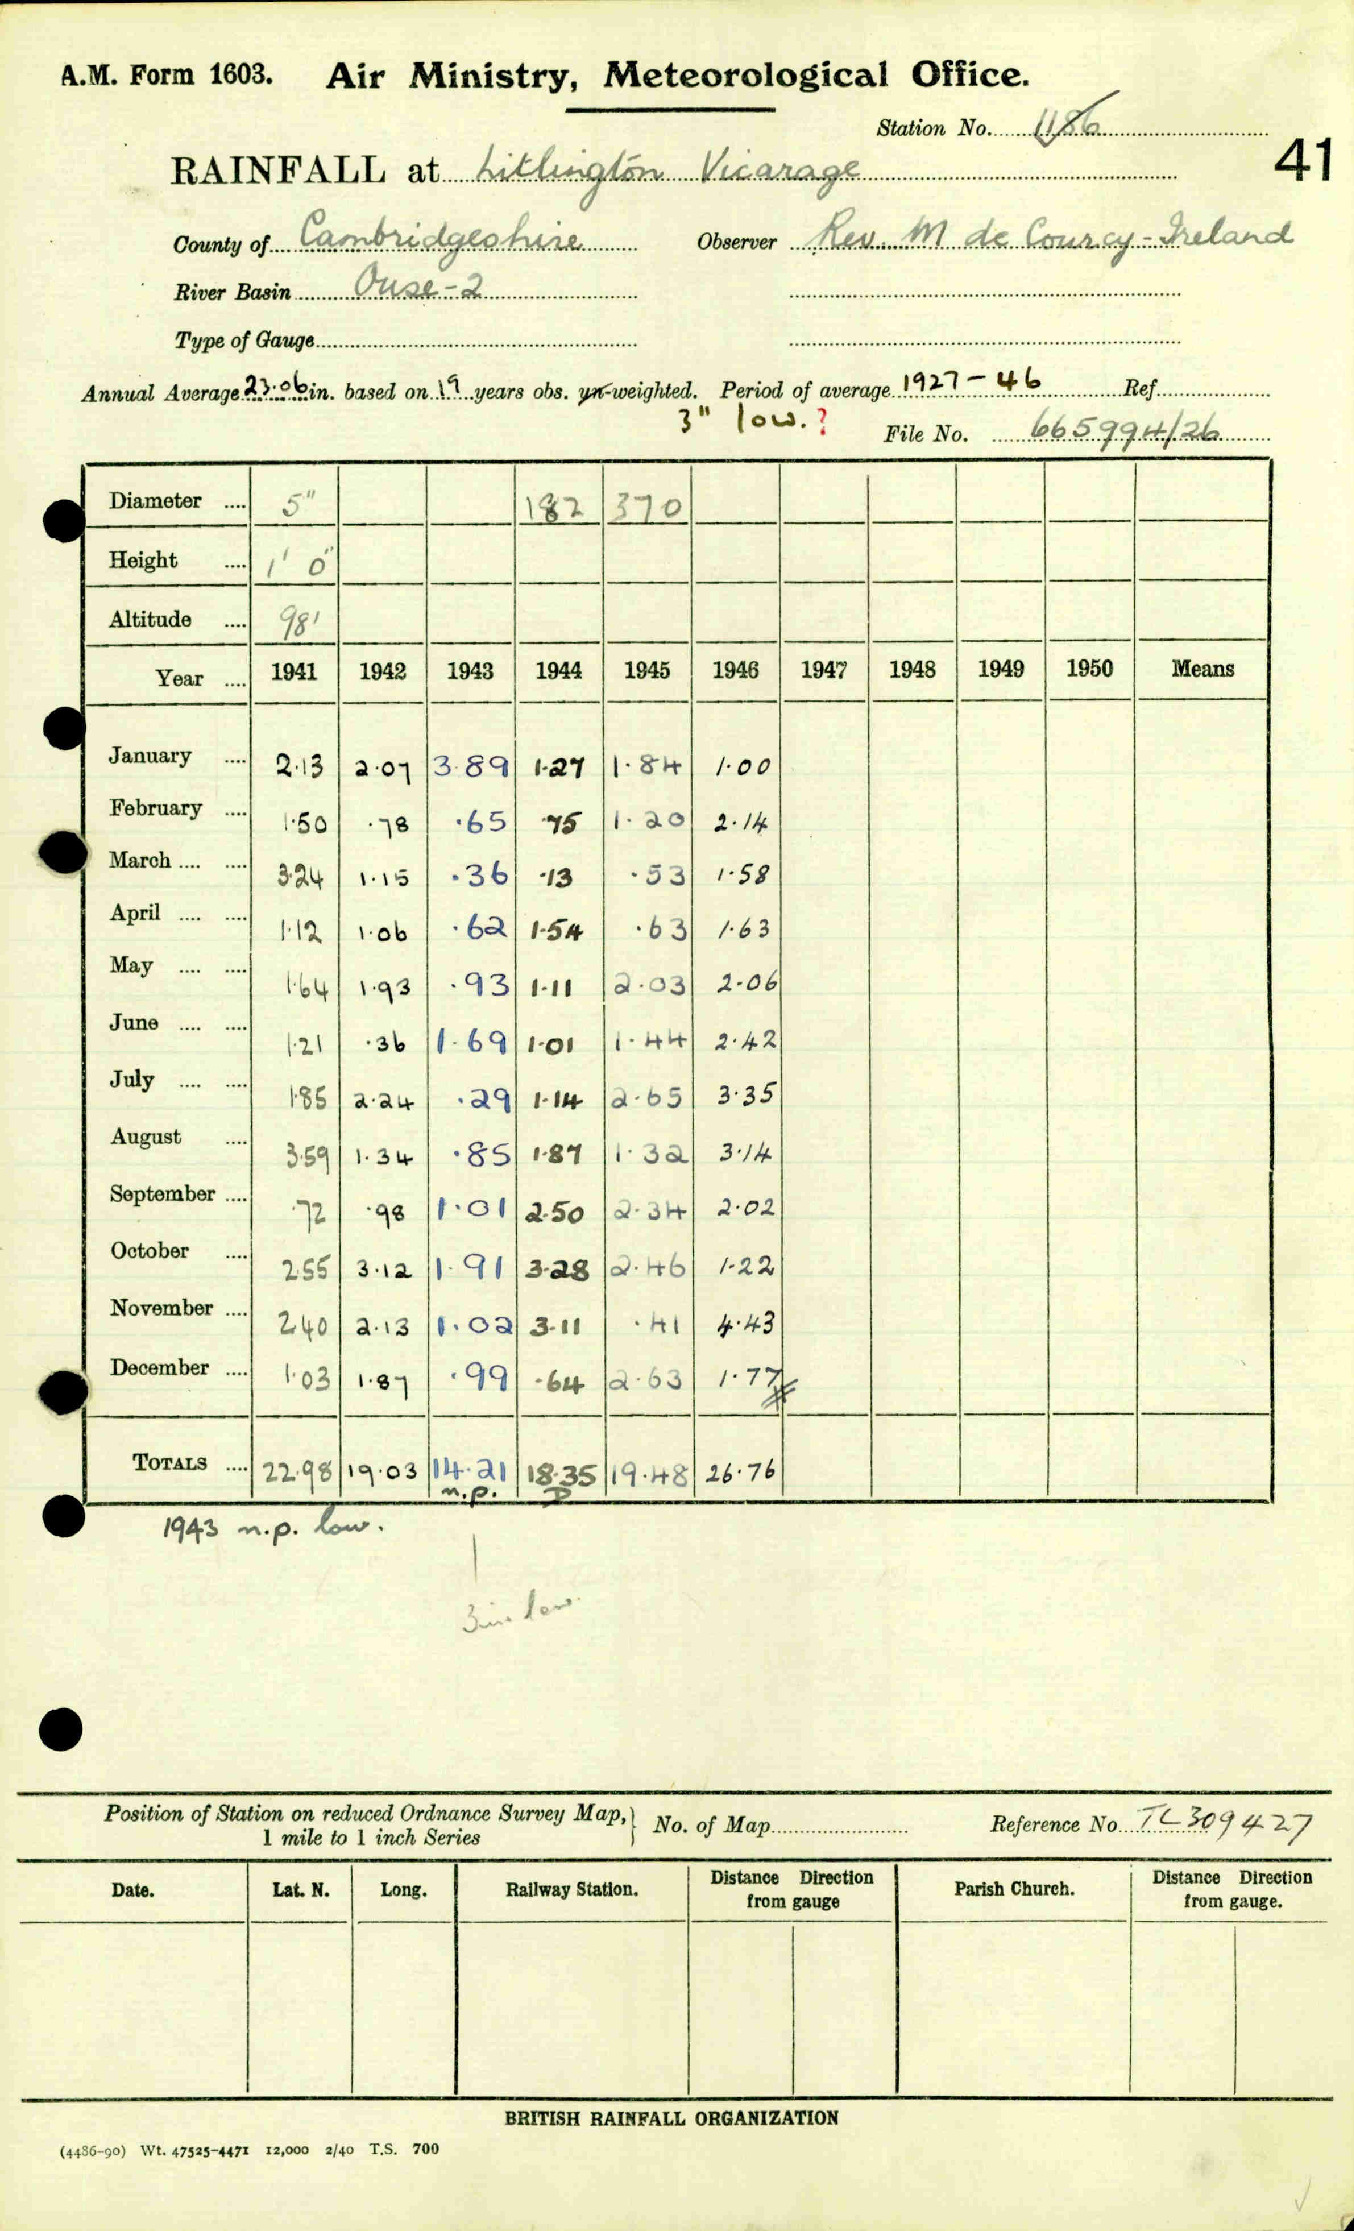 A.M. Form 1603. Air Ministry, Meteorological Office.
Station No. 1186
41
RAINFALL at Litlington Vicarage
County of Cambridgeshire Observer Rev. M de Courcy-Ireland
River Basin Ouse-2
Type of Gauge
Annual Average 23.06 in. based on 19 years obs. un-weighted. Period of average 1927-46 Ref.
3" low.? File No. 665994/26
Diameter .... 5" 182 370
Height .... 1' 0"
Altitude .... 98'
Year .... 1941 1942 1943 1944 1945 1946 1947 1948 1949 1950 Means
January .... 2.13 2.07 3.89 1.27 1.84 1.00
February .... 1.50 .78 .65 .75 1.20 2.14
March .... .... 3.24 1.15 .36 .13 .53 1.58
April .... .... 1.12 1.06 .62 1.54 .63 1.63
May .... .... 1.64 1.93 .93 1.11 2.03 2.06
June .... .... 1.21 .36 1.69 1.01 1.44 2.42
July .... .... 1.85 2.24 .29 1.14 2.65 3.35
August .... 3.59 1.34 .85 1.87 1.32 3.14
September .... .72 .98 1.01 2.50 2.34 2.02
October .... 2.55 3.12 1.91 3.28 2.46 1.22
November .... 2.40 2.13 1.02 3.11 .41 4.43
December .... 1.03 1.87 .99 .64 2.63 1.77
TOTALS .... 22.98 19.03 14.21 18.35 19.48 26.76
n.p. D
1943 n.p. low.
3in low.
Position of Station on reduced Ordnance Survey Map, 1 mile to 1 inch Series } No. of Map Reference No. TL 309427
Date. Lat. N. Long. Railway Station. Distance from gauge Direction Parish Church. Distance Direction from gauge.
BRITISH RAINFALL ORGANIZATION
(4486-90) Wt. 47525-4471 12,000 2/40 T.S. 700